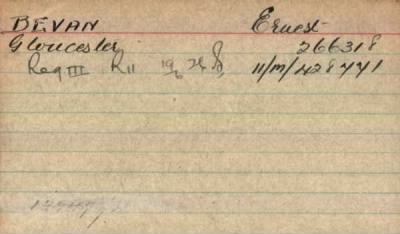 BEVAN Ernest
Gloucester 266318
Reg III R11 11/M/428771